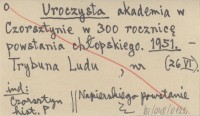 Uroczysta akademia w
Czorsztynie w 300 rocznicę
powstania chłopskiego. 1951. -
Trybuna Ludu, nr (26.VI).
ind:
Czorsztyn || Napierskiego powstanie
hist. P